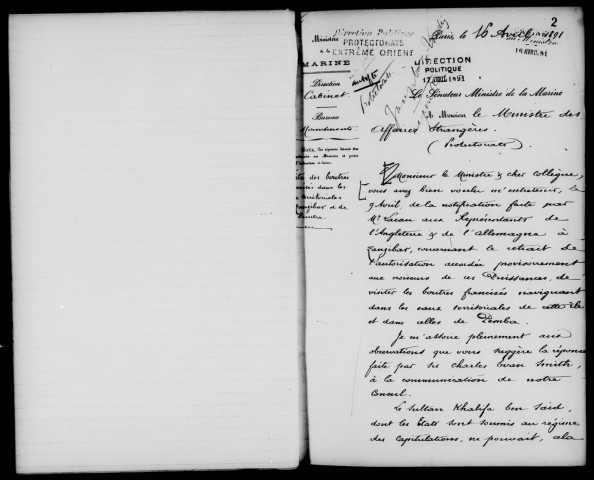 2
Ministère
Direction Politique
PROTECTORATS
EXTRÊME ORIENT
MARINE
Direction
Cabinet
Bureau
Mouvements
Paris, le 16 Avril 1891
16 AVRIL 91
DIRECTION
POLITIQUE
17 AVRIL 1891
Le Sénateur Ministre de la Marine
à Monsieur le Ministre des
Affaires Étrangères.
(Protectorats)
des boutres
dans les
territoriales
Zanzibar et de
Pemba.
Monsieur le Ministre & cher collègue,
vous avez bien voulu m'entretenir, le
9 Avril, de la notification faite par
Mr. Lacau aux Représentants de
l'Angleterre & de l'Allemagne à
Zanzibar, concernant le retrait de
l'autorisation accordée provisoirement
aux croiseurs de ces Puissances, de
visiter les boutres francisés naviguant
dans les eaux territoriales de cette île
et dans celles de Pemba.
Je m'associe pleinement aux
observations que vous suggère la réponse
faite par Sir Charles Evan Smith,
à la communication de notre
Consul.
Le Sultan Khalifa ben Saïd,
dont les États sont soumis au régime
des Capitulations, ne pouvait, cela